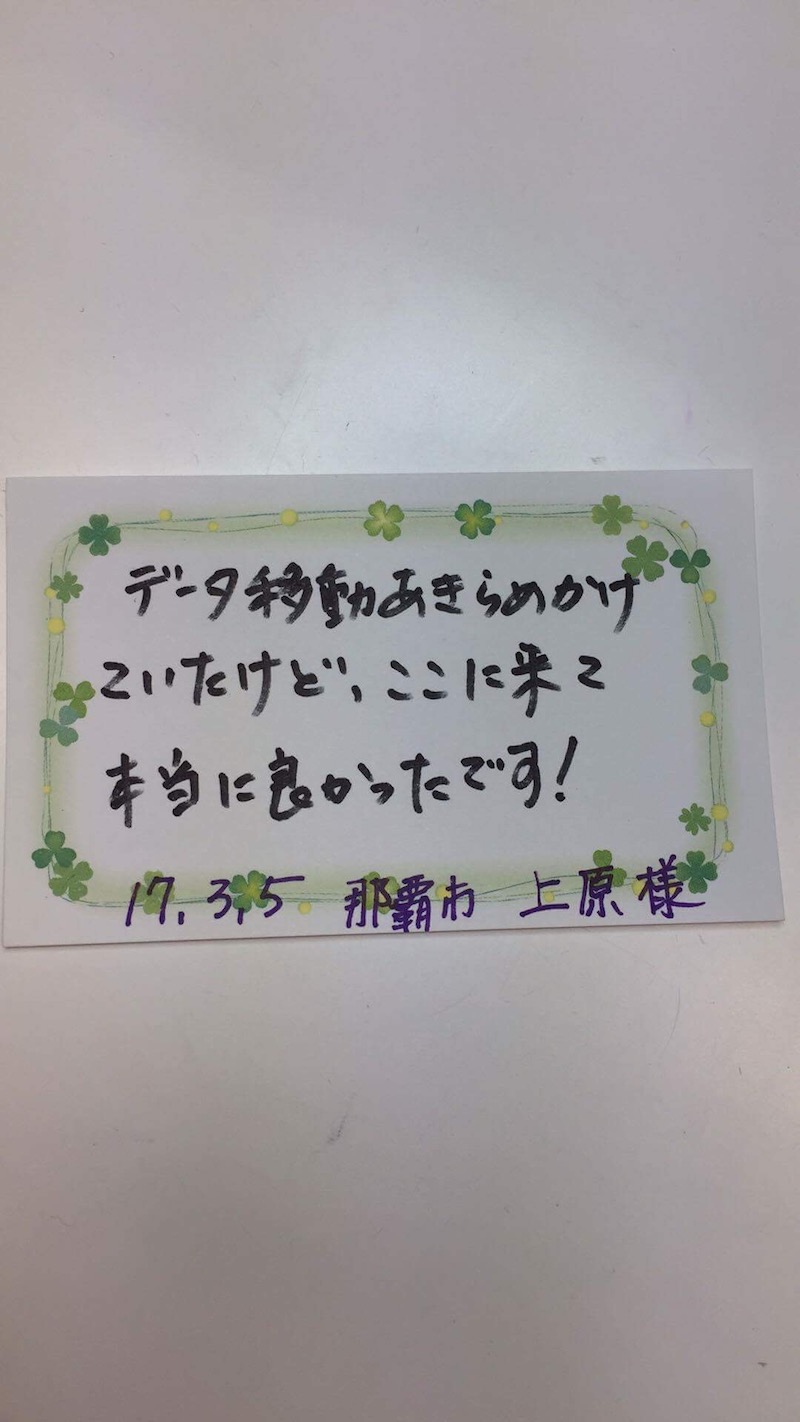 データ移動あきらめかけ
ていたけど、ここに来て
本当に良かったです!
17.3.5 那覇市 上原様